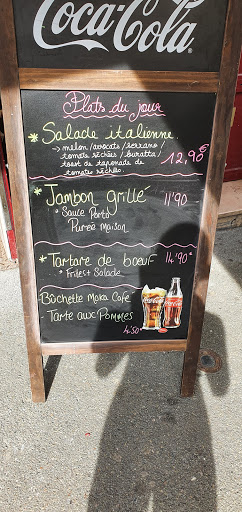 Coca-Cola
Plats du jour
* Salade italienne.
→ melon/avocats/serrano/
tomate séchées/buratta/
toast de tapenade de
tomates séchées.
12,90€
* Jambon grillé 11'90
° Sauce Porto
Purée Maison
* Tartare de bœuf 14'90€
° Frites Salade
Bûchette Moka Café
Tarte aux Pommes
4'50